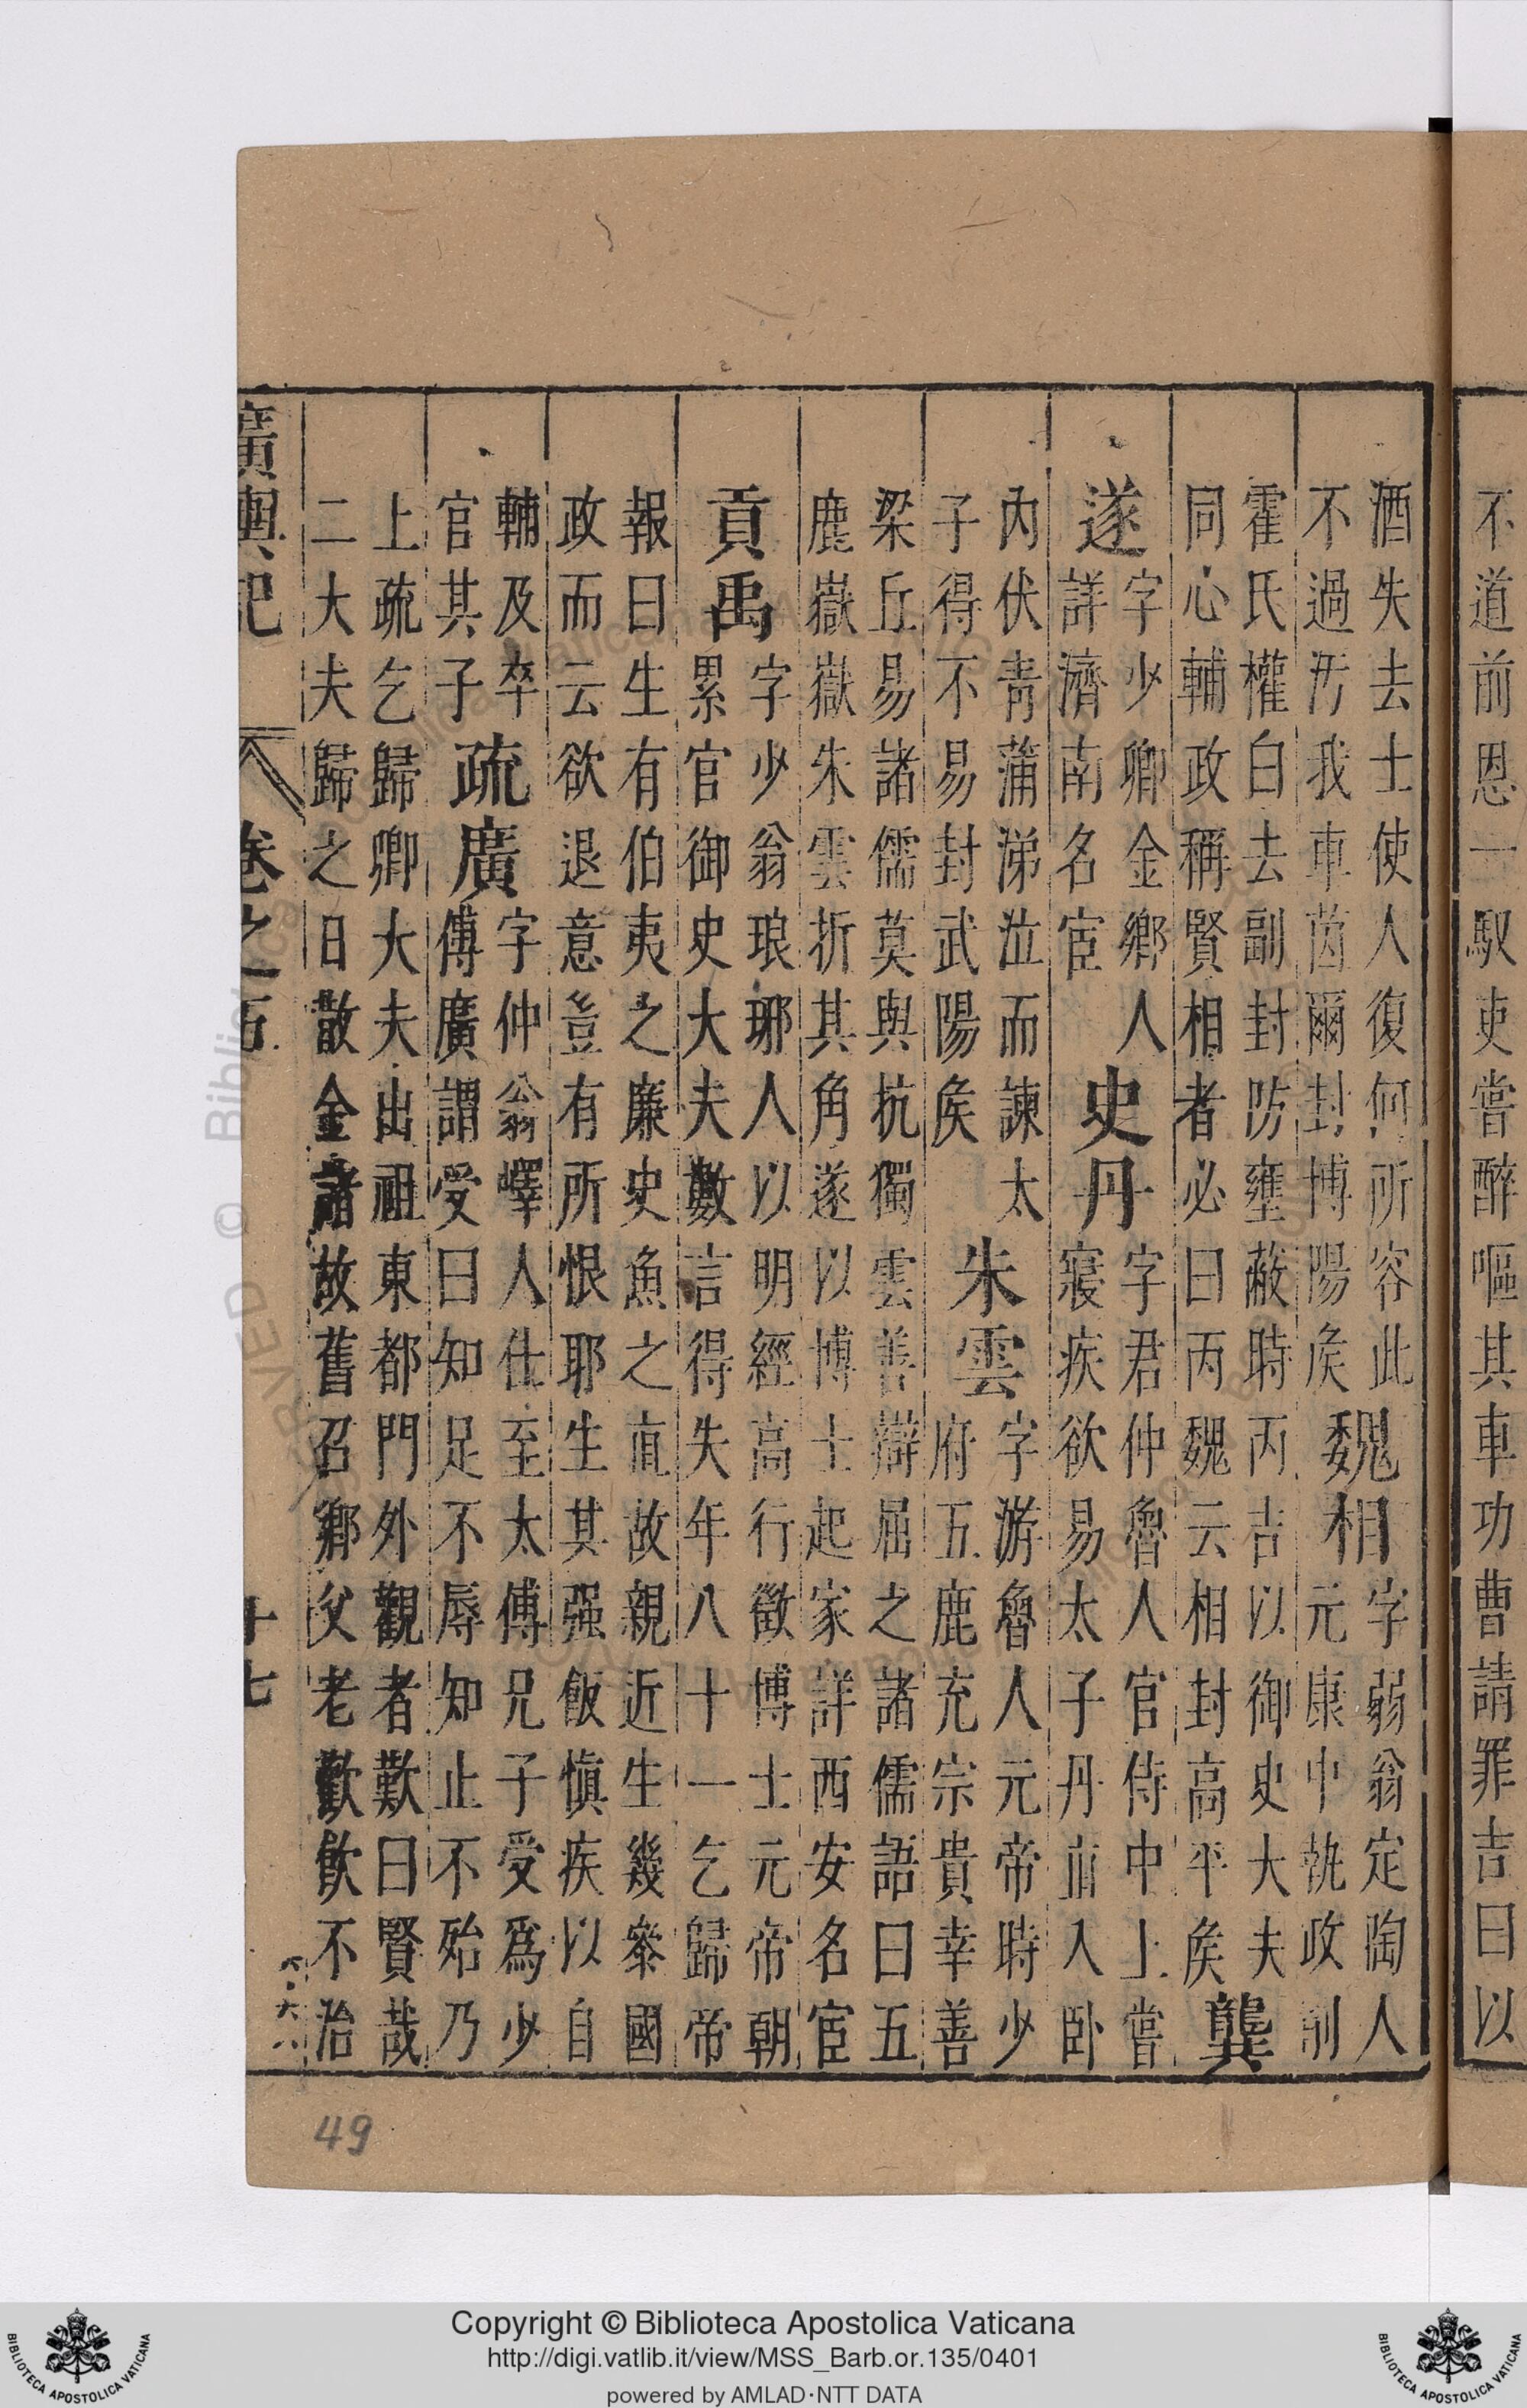 不道前恩一馭吏嘗醉嘔其車功曹請罪吉曰以
酒失去士使人復何所容此
不過汚我車茵爾封博陽侯
魏相
字弱翁定陶人
元康中執政制
霍氏權白去副封防壅蔽時丙吉以御史大夫
同心輔政稱賢相者必曰丙魏云相封高平侯
龔
遂
字少卿金鄉人
詳濟南名宦
史丹
字君仲魯人官侍中上嘗
寢疾欲易太子丹直入卧
內伏青蒲涕泣而諫太
子得不易封武陽侯
朱雲
字游魯人元帝時少
府五鹿充宗貴幸善
梁丘易諸儒莫與抗獨雲善辯屈之諸儒語曰五
鹿嶽嶽朱雲折其角遂以博士起家詳西安名宦
貢禹
字少翁琅琊人以明經高行徵博士元帝朝
累官御史大夫數言得失年八十一乞歸帝
報曰生有伯夷之廉史魚之直故親近生幾叅國
政而云欲退意豈有所恨耶生其强飯慎疾以自
輔及卒
官其子
疏廣
字仲翁嶧人仕至太傅兄子受爲少
傅廣謂受曰知足不辱知止不殆乃
上疏乞歸卿大夫出祖東都門外觀者歎曰賢哉
二大夫歸之日散金諸故舊召鄉父老歡飲不治
廣輿記 卷之五 十七
49
Copyright © Biblioteca Apostolica Vaticana
http://digi.vatlib.it/view/MSS_Barb.or.135/0401
powered by AMLAD·NTT DATA
BIBLIOTECA APOSTOLICA VATICANA
BIBLIOTECA APOSTOLICA VATICANA